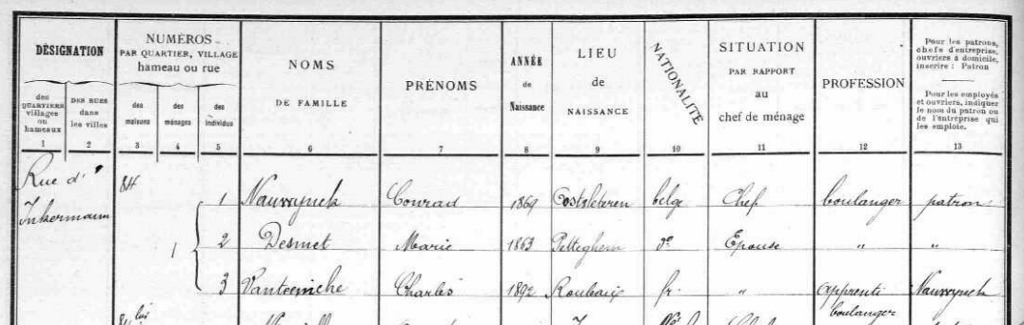 DÉSIGNATION
NUMÉROS
PAR QUARTIER, VILLAGE
hameau ou rue
NOMS
DE FAMILLE
PRÉNOMS
ANNÉE
de
Naissance
LIEU
de
NAISSANCE
NATIONALITÉ
SITUATION
PAR RAPPORT
au
chef de ménage
PROFESSION
Pour les patrons,
chefs d'entreprise,
ouvriers à domicile,
inscrire : Patron
Pour les employés
et ouvriers, indiquer
le nom du patron ou
de l'entreprise qui
les emploie.
des
QUARTIERS
villages
ou
hameaux
DES RUES
dans
les villes
des
maisons
des
ménages
des
individus
1 2 3 4 5 6 7 8 9 10 11 12 13
Rue d'
Inkermann
84
1 Conrad 1869 belge Chef boulanger patron
1 2 Desmet Marie 1863 do Epouse " "
3 Charles 1892 Roubaix fr. " apprenti
boulanger
bis